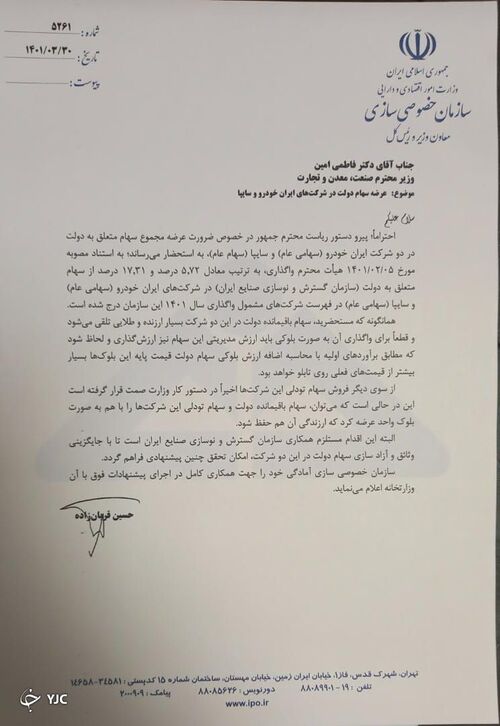 شماره: ۵۲۶۱
تاریخ: ۱۴۰۱/۰۳/۳۰
پیوست:
جمهوری اسلامی ایران
وزارت امور اقتصادی و دارایی
سازمان خصوصی سازی
معاون وزیر و رئیس کل
جناب آقای دکتر فاطمی امین
وزیر محترم صنعت، معدن و تجارت
موضوع: عرضه سهام دولت در شرکت‌های ایران خودرو و سایپا
سلام علیکم
احتراماً؛ پیرو دستور ریاست محترم جمهور در خصوص ضرورت عرضه مجموع سهام متعلق به دولت
در دو شرکت ایران خودرو (سهامی عام) و سایپا (سهام عام)، به استحضار می‌رساند؛ به استناد مصوبه
مورخ ۱۴۰۱/۰۲/۰۵ هیأت محترم واگذاری، به ترتیب معادل ۵,۷۲ درصد و ۱۷,۳۱ درصد از سهام
متعلق به دولت (سازمان گسترش و نوسازی صنایع ایران) در شرکت‌های ایران خودرو (سهامی عام)
و سایپا (سهامی عام) در فهرست شرکت‌های مشمول واگذاری سال ۱۴۰۱ این سازمان درج شده است.
همانگونه که مستحضرید، سهام باقیمانده دولت در این دو شرکت بسیار ارزنده و طلایی تلقی می‌شود
و قطعاً برای واگذاری آن به صورت بلوکی باید ارزش مدیریتی این سهام نیز ارزش‌گذاری و لحاظ شود
که مطابق برآوردهای اولیه با محاسبه اضافه ارزش بلوکی سهام دولت قیمت پایه این بلوک‌ها بسیار
بیشتر از قیمت‌های فعلی روی تابلو خواهد بود.
از سوی دیگر فروش سهام تودلی این شرکت‌ها اخیراً در دستور کار وزارت صمت قرار گرفته است
این در حالی است که می‌توان، سهام باقیمانده دولت و سهام تودلی این شرکت‌ها را با هم به صورت
بلوک واحد عرضه کرد که ارزندگی آن هم حفظ شود.
البته این اقدام مستلزم همکاری سازمان گسترش و نوسازی صنایع ایران است تا با جایگزینی
وثائق و آزاد سازی سهام دولت در این دو شرکت، امکان تحقق چنین پیشنهادی فراهم گردد.
سازمان خصوصی سازی آمادگی خود را جهت همکاری کامل در اجرای پیشنهادات فوق با آن
وزارتخانه اعلام می‌نماید.
حسین قربان‌زاده
تهران، شهرک قدس، فاز۱، خیابان ایران زمین، خیابان مهستان، ساختمان شماره ۱۵ کدپستی: ۳۴۵۸۱-۱۴۶۵۸
تلفن: ۱۹-۸۸۰۸۹۹۰۱ دورنویس: ۸۸۰۸۵۶۲۶ پیامک: ۲۰۰۰۹۰۹
www.ipo.ir
YJC